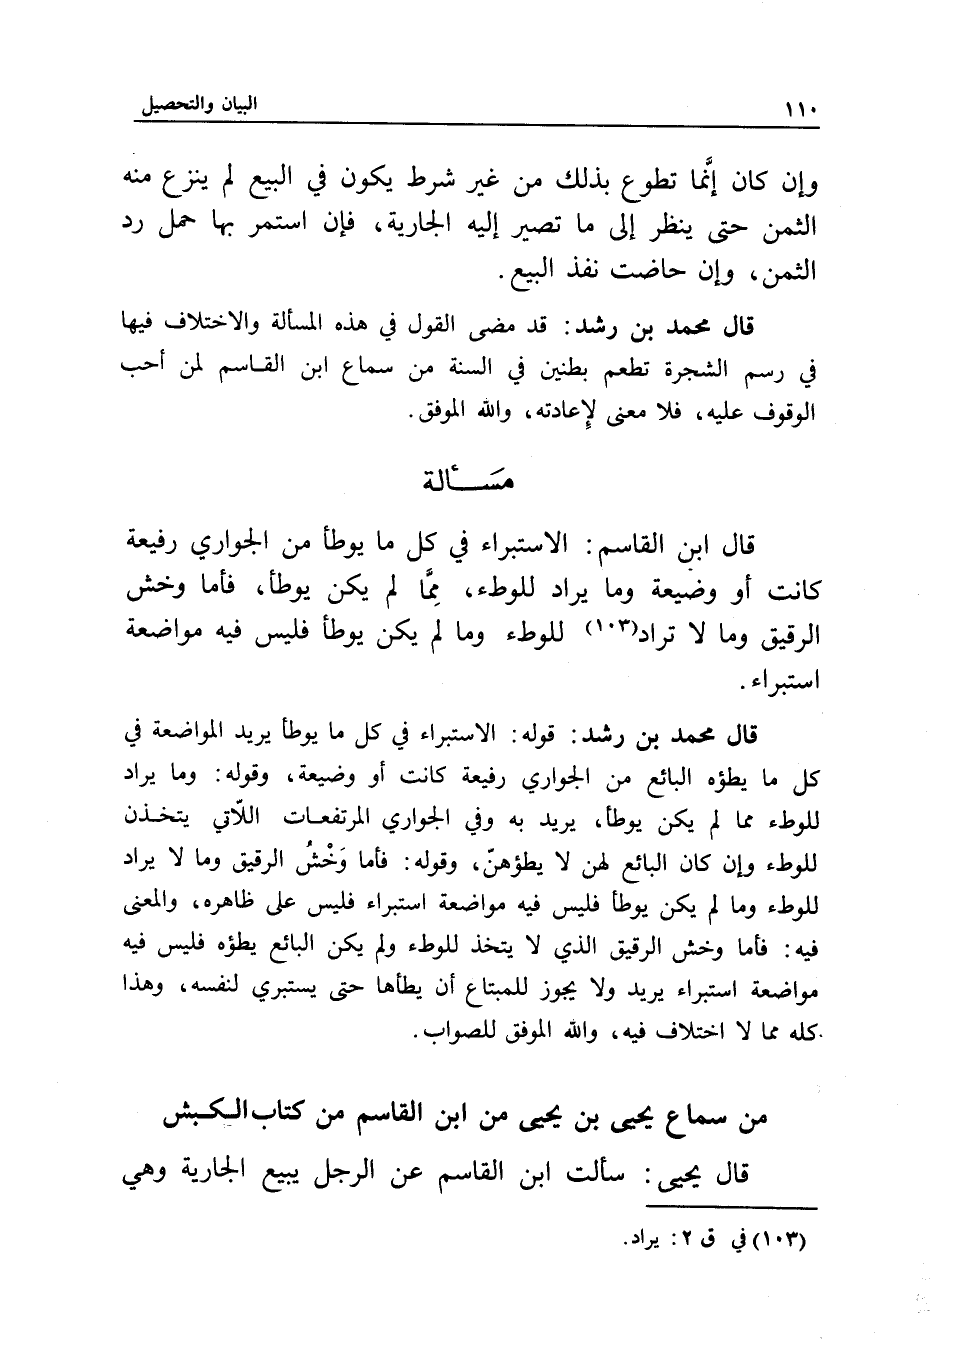 ١١٠ البيان والتحصيل
وإن كان إنَّما تطوع بذلك من غير شرط يكون في البيع لم ينزع منه
الثمن حتى ينظر إلى ما تصير إليه الجارية، فإن استمر بها حمل رد
الثمن، وإن حاضت نفذ البيع.
قال محمد بن رشد: قد مضى القول في هذه المسألة والاختلاف فيها
في رسم الشجرة تطعم بطنين في السنة من سماع ابن القاسم لمن أحب
الوقوف عليه، فلا معنى لإِعادته، والله الموفق.
مسَـــألة
قال ابن القاسم: الاستبراء في كل ما يوطأ من الجواري رفيعة
كانت أو وضيعة وما يراد للوطء، مِمَّا لم يكن يوطأ، فأما وخش
الرقيق وما لا تراد(١٠٣) للوطء وما لم يكن يوطأ فليس فيه مواضعة
استبراء.
قال محمد بن رشد: قوله: الاستبراء في كل ما يوطأ يريد المواضعة في
كل ما يطؤه البائع من الجواري رفيعة كانت أو وضيعة، وقوله: وما يراد
للوطء مما لم يكن يوطأ، يريد به وفي الجواري المرتفعـات اللّاتي يتخـذن
للوطء وإن كان البائع لهن لا يطؤهنّ، وقوله: فأما وَخْشُ الرقيق وما لا يراد
للوطء وما لم يكن يوطأ فليس فيه مواضعة استبراء فليس على ظاهره، والمعنى
فيه: فأما وخش الرقيق الذي لا يتخذ للوطء ولم يكن البائع يطؤه فليس فيه
مواضعة استبراء يريد ولا يجوز للمبتاع أن يطأها حتى يستبري لنفسه، وهذا
كله مما لا اختلاف فيه، والله الموفق للصواب.
من سماع يحيى بن يحيى من ابن القاسم من كتاب الكـبش
قال يحيى: سألت ابن القاسم عن الرجل يبيع الجارية وهي
(١٠٣) في ق ٢: يراد.